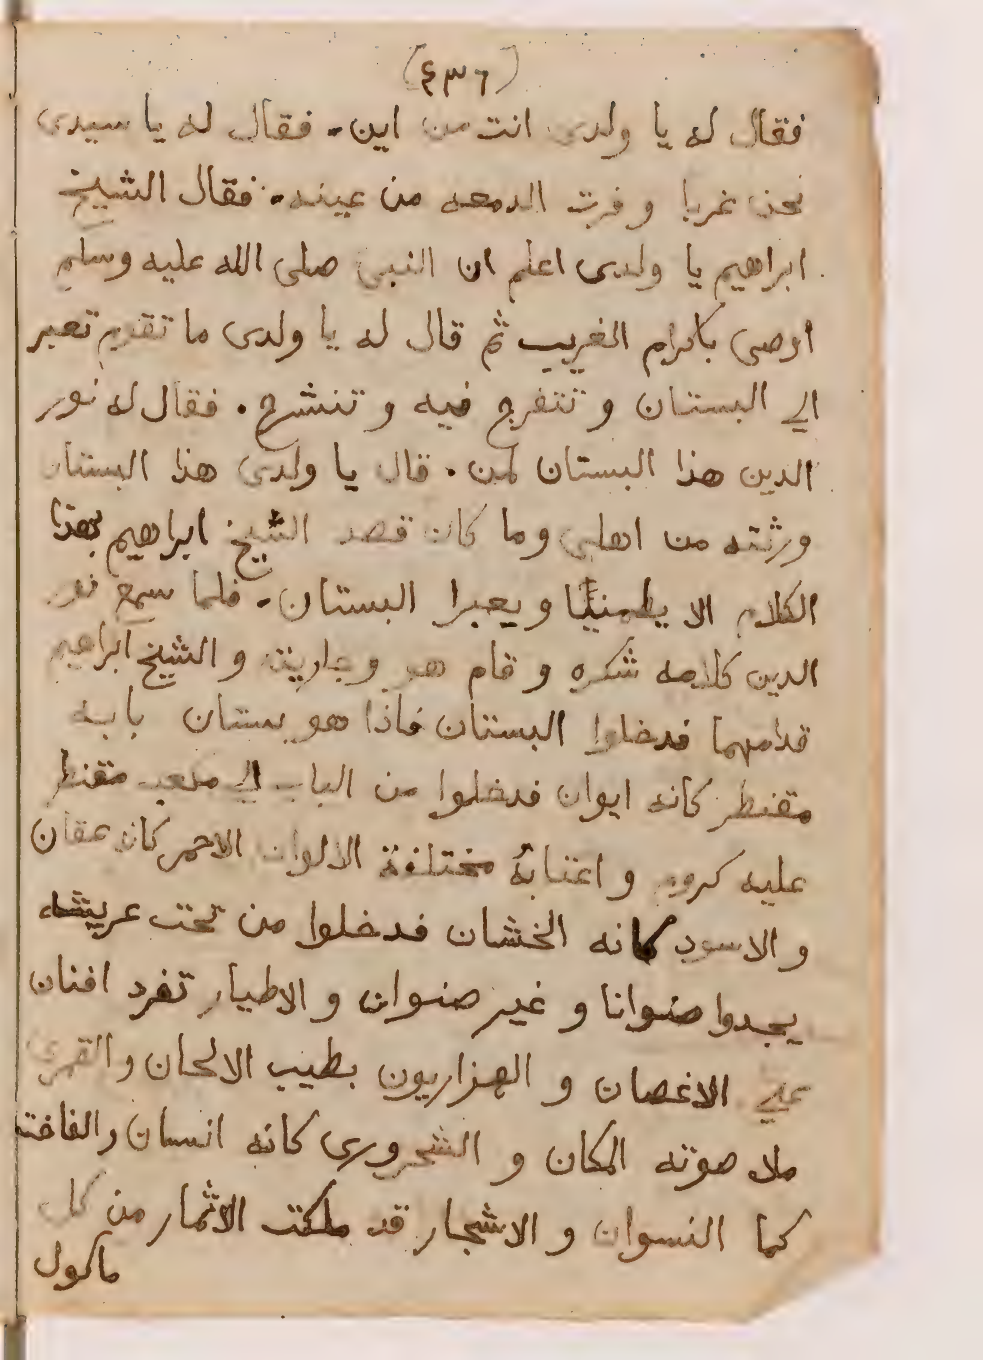 (٤٣٦)
فقال له يا ولدى انت من اين. فقال له يا سيدى
نحن غربا و فرت الدمعه من عينه. فقال الشيخ
ابراهيم يا ولدى اعلم ان النبى صلى الله عليه وسلم
اوصى باكرام الغريب ثم قال له يا ولدى ما تقوم تعبر
الي البستان و تتفرج فيه و تنشرح. فقال له نور
الدين هذا البستان لمن. قال يا ولدى هذا البستان
ورثته من اهلى وما كان قصد الشيخ ابراهيم بهذا
الكلام الا يطمنيا و يعبرا البستان. فلما سمع نور
الدين كلامه شكره و قام هو وجاريته و الشيخ ابراهيم
قدامهما فدخلوا البستان فاذا هو بستان بابه
مقنطر كانه ايوان فدخلوا من الباب الي مقنطر
عليه كروم و اعنابهُ مختلفة الالوان الاحمر كانه
و الاسود كانه الخشان فدخلوا من تحت عريشه
يجدوا صنوانا و غير صنوان و الاطيار تفرد افنان
علي الاغصان و الهزاريون بطيب الالحان والقمرى
ملا صوته المكان و الشحرورى كانه انسان والفاخته
كما النسوان و الاشجار قد ملكت الاثمار من كل
ماكول